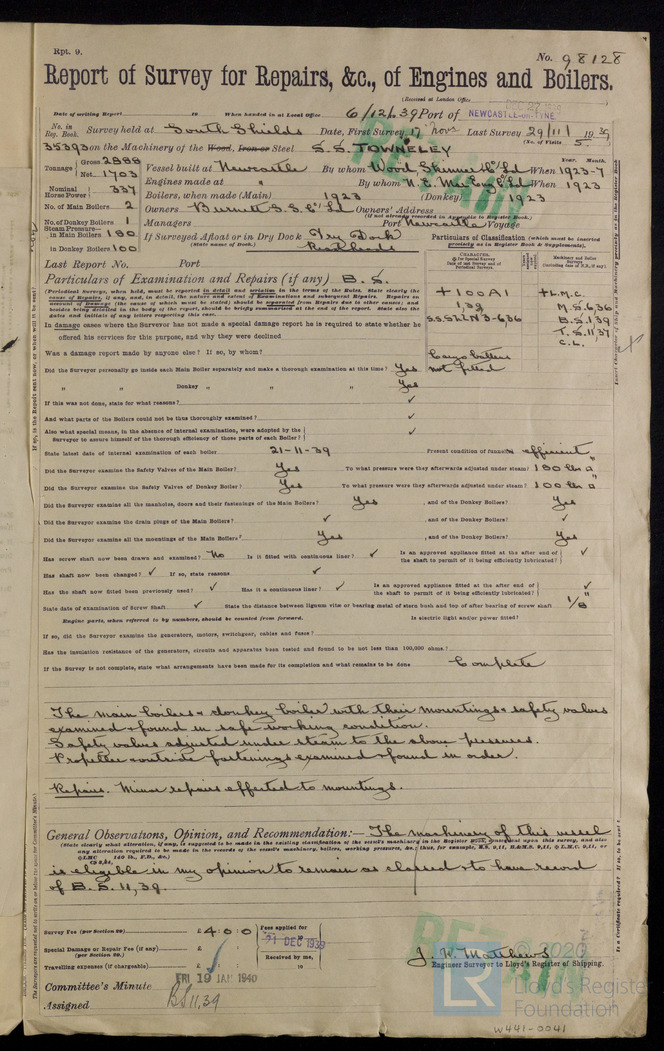 Rpt. 9.
No. 98128
Report of Survey for Repairs, &c., of Engines and Boilers.
(Received at London Office DEC 27 1939
Date of writing Report 19 When handed in at Local Office 6/12/39 Port of NEWCASTLE-ON-TYNE
No. in Reg. Book. Survey held at South Shields Date, First Survey 17 Nov Last Survey 29/11/ 1939
(No. of Visits 5
35393 on the Machinery of the Wood, Iron or Steel S.S. TOWNELEY
Tonnage Gross 2888 Net 1703
Vessel built at Newcastle By whom Wood, Skinner & Co Ld When 1923-7
Year. Month.
Engines made at " By whom N.E. Mar Eng Co Ld When 1923
Nominal Horse Power 337
Boilers, when made (Main) 1923 (Donkey) 1923
No. of Main Boilers 2
Owners Burnett S.S. Co Ld Owners' Address
(if not already recorded in Appendix to Register Book.)
No. of Donkey Boilers 1
Managers Port Newcastle Voyage
Steam Pressure in Main Boilers 180
in Donkey Boilers 100
If Surveyed Afloat or in Dry Dock Dry Dock
(State name of Dock.) Readheads
Particulars of Classification (which must be inserted precisely as in Register Book & Supplements).
Last Report No. Port
Particulars of Examination and Repairs (if any) B.S.
(Periodical Surveys, when held, must be reported in detail and seriatim in the terms of the Rules. State clearly the cause of Repairs, if any, and, in detail, the nature and extent of Examinations and subsequent Repairs. Repairs on account of Damage (the cause of which must be stated) should be separated from Repairs due to other causes; and besides being detailed in the body of the report, should be briefly summarized at the end of the report. State also the dates and initials of any letters respecting this case.
CHARACTER.
+100A1
1,39
S.S.S.L.L N3-6,36
+L.M.C.
M.S. 6,36
B.S. 1,39
T.S. 11,37
C.L.
In damage cases where the Surveyor has not made a special damage report he is required to state whether he
offered his services for this purpose, and why they were declined
Was a damage report made by anyone else? If so, by whom?
not fitted
Did the Surveyor personally go inside each Main Boiler separately and make a thorough examination at this time? Yes
" " Donkey " " " Yes
If this was not done, state for what reasons? ✓
And what parts of the Boilers could not be thus thoroughly examined? ✓
Also what special means, in the absence of internal examination, were adopted by the Surveyor to assure himself of the thorough efficiency of those parts of each Boiler? ✓
State latest date of internal examination of each boiler 21-11-39 Present condition of funnel efficient
Did the Surveyor examine the Safety Valves of the Main Boiler? Yes To what pressure were they afterwards adjusted under steam? 180 lbs □"
Did the Surveyor examine the Safety Valves of Donkey Boiler? Yes To what pressure were they afterwards adjusted under steam? 100 lbs □"
Did the Surveyor examine all the manholes, doors and their fastenings of the Main Boilers? Yes , and of the Donkey Boilers? Yes
Did the Surveyor examine the drain plugs of the Main Boilers? ✓ , and of the Donkey Boilers? ✓
Did the Surveyor examine all the mountings of the Main Boilers? Yes , and of the Donkey Boilers? Yes
Has screw shaft now been drawn and examined? No Is it fitted with continuous liner? ✓ Is an approved appliance fitted at the after end of the shaft to permit of it being efficiently lubricated? ✓
Has shaft now been changed? ✓ If so, state reasons ✓
Has the shaft now fitted been previously used? ✓ Has it a continuous liner? ✓ Is an approved appliance fitted at the after end of the shaft to permit of it being efficiently lubricated? ✓
State date of examination of Screw Shaft ✓ State the distance between lignum vitæ or bearing metal of stern bush and top of after bearing of screw shaft 1/8"
Engine parts, when referred to by numbers, should be counted from forward. Is electric light and/or power fitted?
If so, did the Surveyor examine the generators, motors, switchgear, cables and fuses?
Has the insulation resistance of the generators, circuits and apparatus been tested and found to be not less than 100,000 ohms?
If the Survey is not complete, state what arrangements have been made for its completion and what remains to be done Complete
The main boilers & donkey boiler with their mountings & safety valves
examined & found in safe working condition.
Safety valves adjusted under steam to the above pressures.
Propeller & outside fastenings examined & found in order.
Repairs. Minor repairs effected to mountings.
General Observations, Opinion, and Recommendation:— The machinery of this vessel
is eligible in my opinion to remain as classed & to have record
of B.S. 11,39.
Survey Fee (per Section 29) £ 4 : 0 : 0
Fees applied for 21 DEC 1939
Special Damage or Repair Fee (if any) (per Section 29.) £
Received by me,
Travelling expenses (if chargeable) £ 19
J. N. Matthews
Engineer Surveyor to Lloyd's Register of Shipping.
Committee's Minute FRI 19 JAN 1940
Assigned BS 11,39
© 2020
LR
Lloyd's Register
Foundation
W441-0041